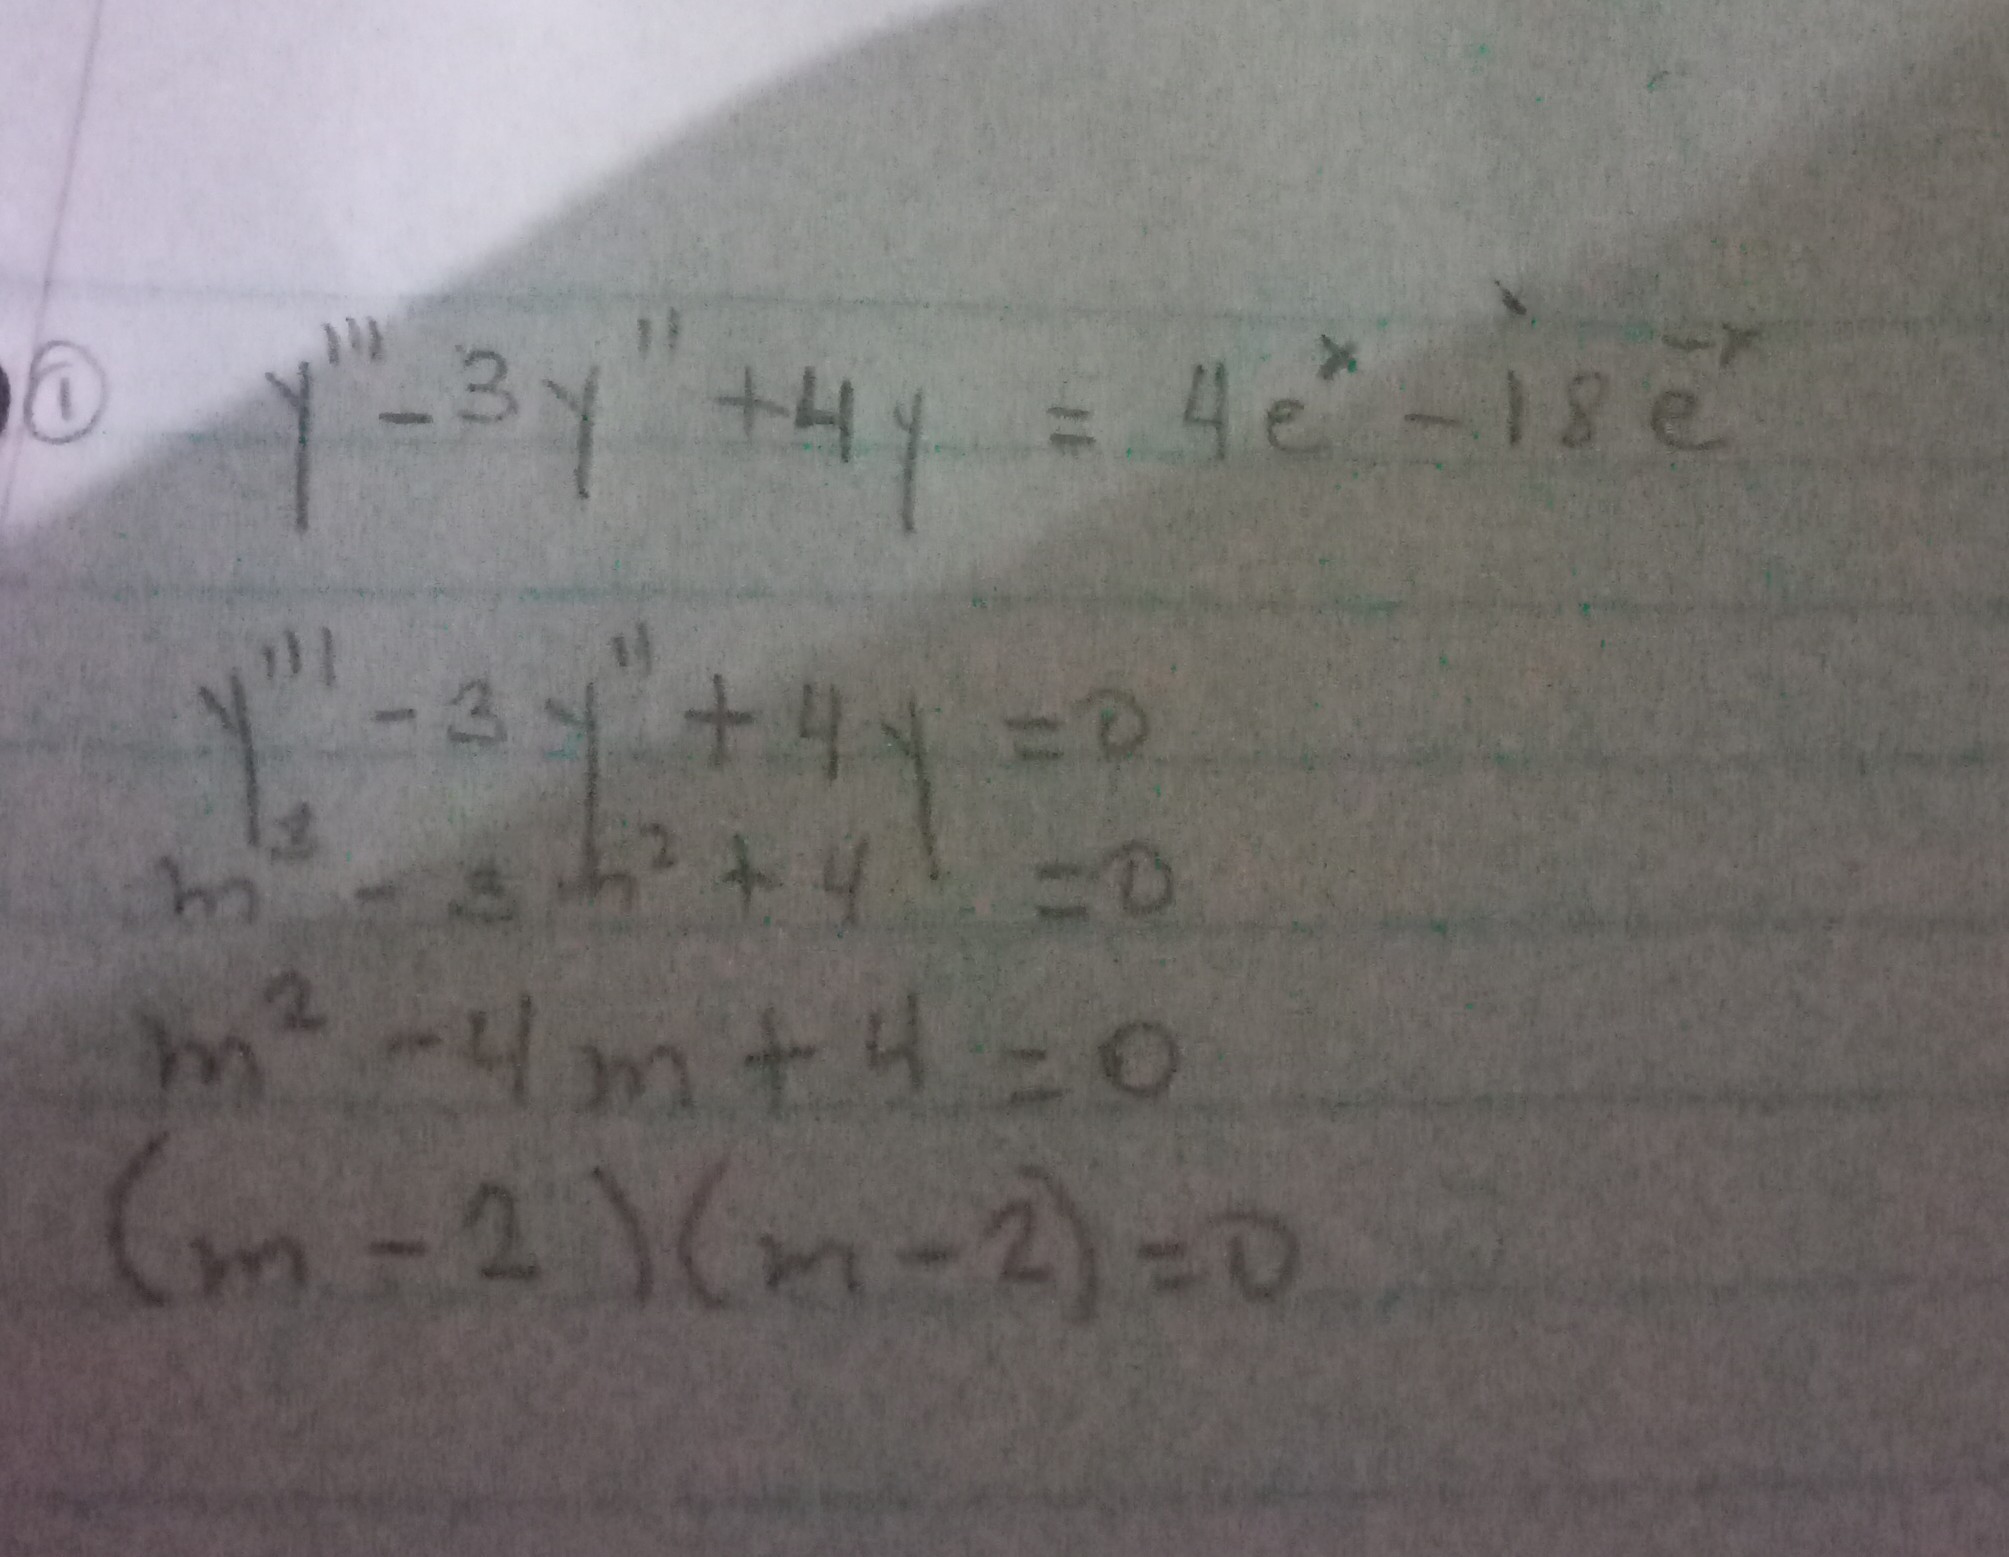 ① y''' - 3y'' + 4y = 4e^x - 18e^-x
y''' - 3y'' + 4y = 0
m^3 - 3m^2 + 4 = 0
m^2 - 4m + 4 = 0
(m - 2)(m - 2) = 0